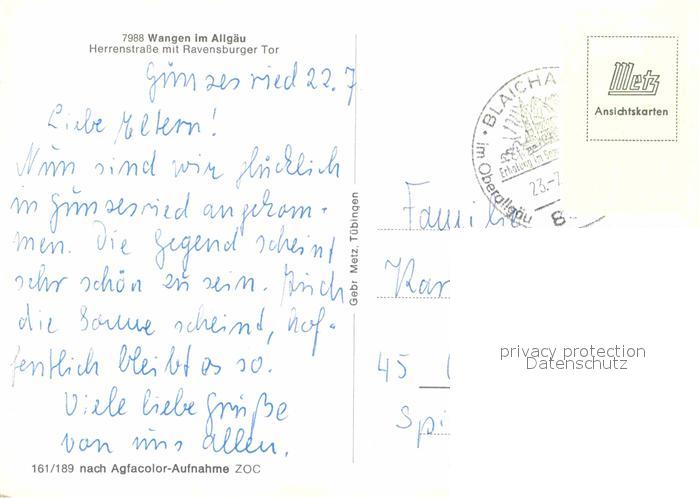 7988 Wangen im Allgäu
Herrenstraße mit Ravensburger Tor
Gunzesried 22.7
Liebe Eltern!
Nun sind wir glücklich
in Gunzesried angekom-
men. Die Gegend scheint
sehr schön zu sein. Auch
die Sonne scheint, hof-
fentlich bleibt es so.
Viele liebe Grüße
von uns allen.
161/189 nach Agfacolor-Aufnahme ZOC
Gebr Metz, Tübingen
BLAICHA
Erholung im
23.-7
im Oberallgäu
8
Metz
Ansichtskarten
Familie
Kar
45
Spi
privacy protection
Datenschutz